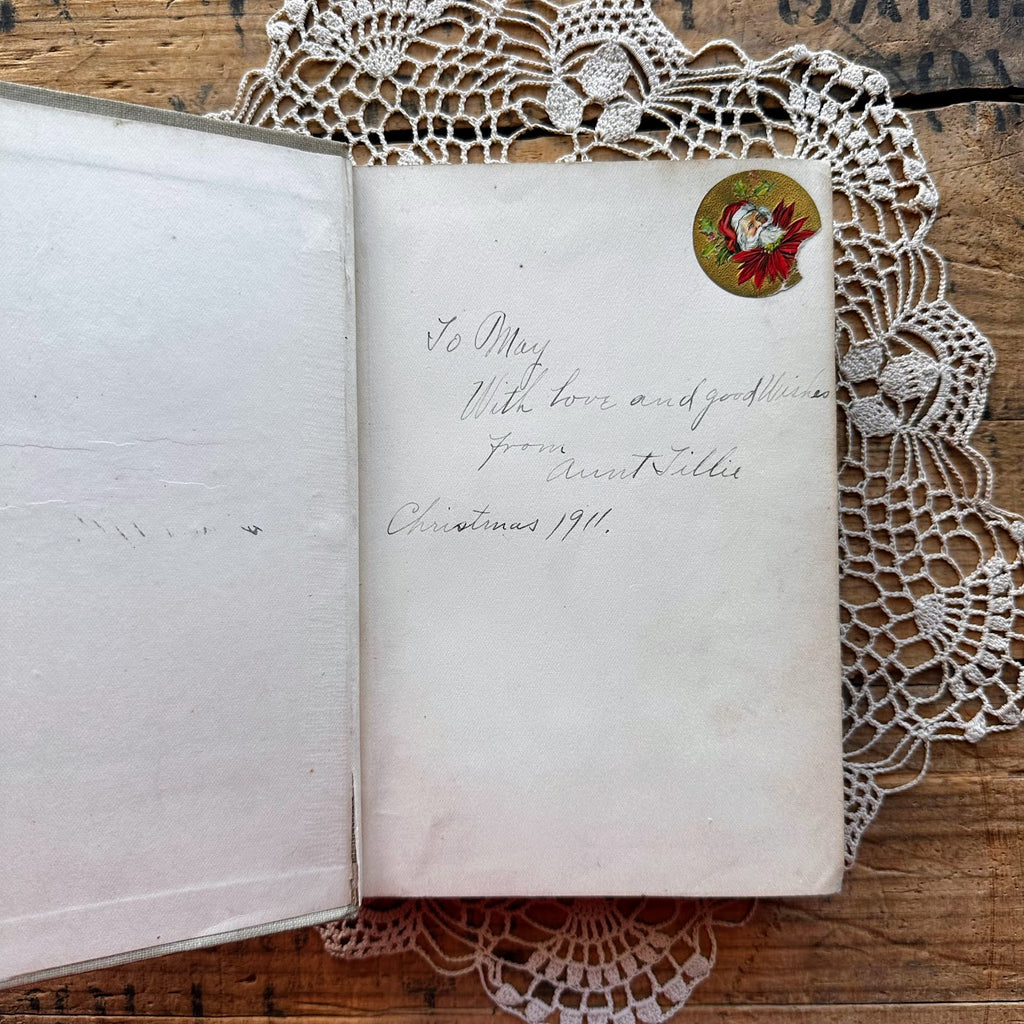 To May
With love and good Wishes
from
Aunt Tillie
Christmas 1911.